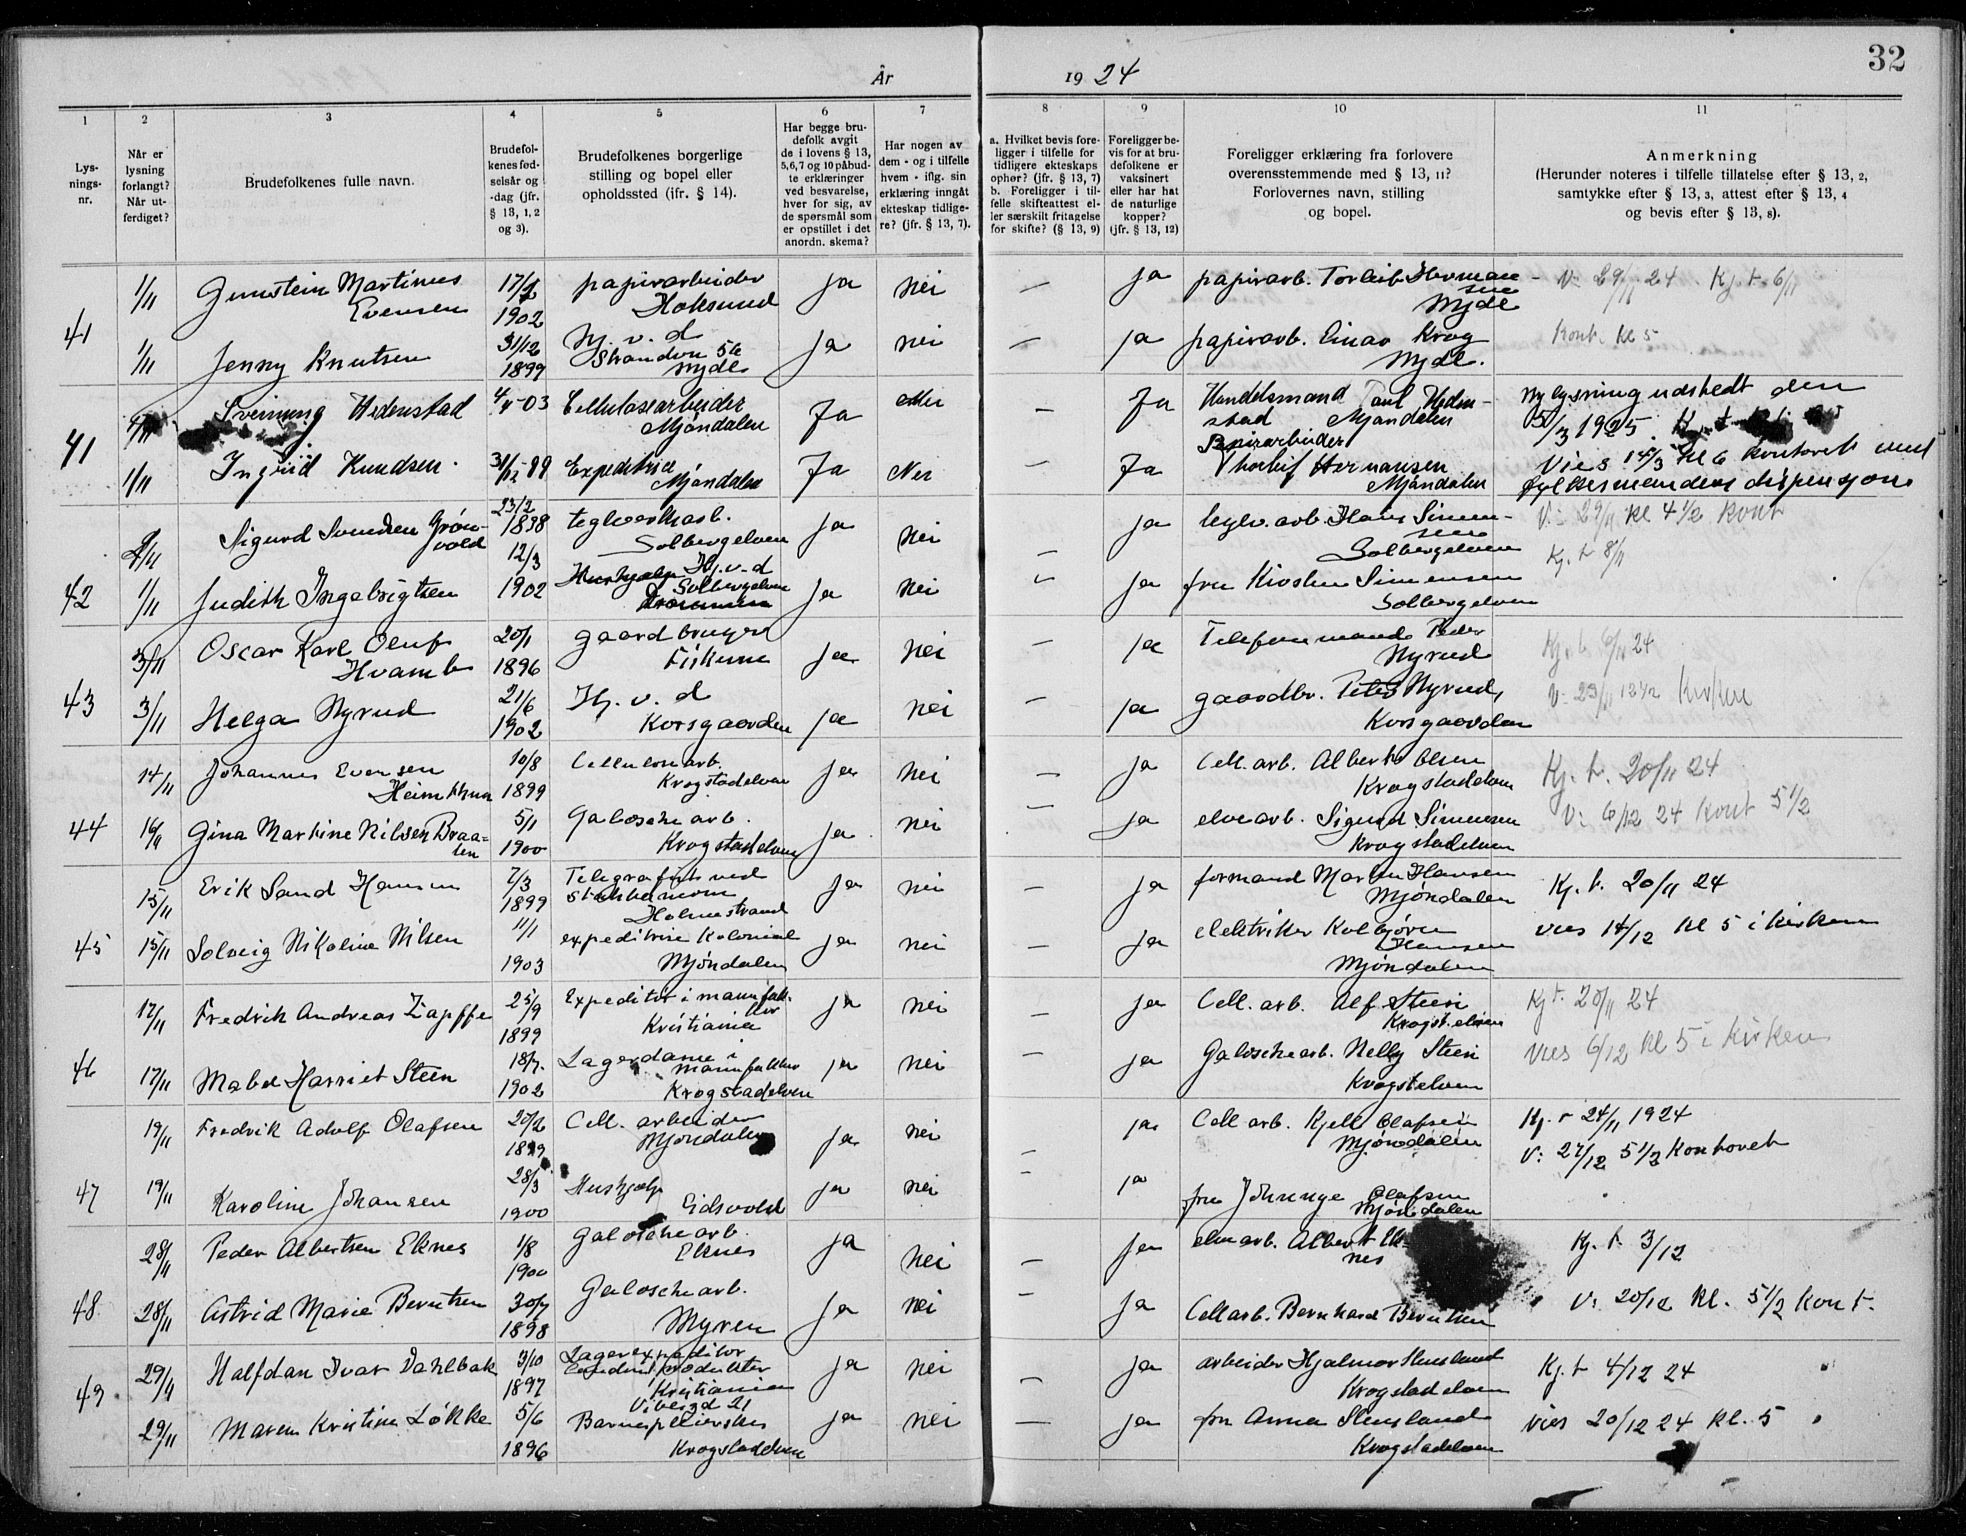 32
År 1924
1 2 3 4 5 6 7 8 9 10 11
Lysnings-nr.
Når er lysning forlangt? Når utferdiget?
Brudefolkenes fulle navn.
Brudefolkenes fødselsår og -dag (jfr. § 13, 1, 2 og 3).
Brudefolkenes borgerlige stilling og bopel eller opholdssted (jfr. § 14).
Har begge brudefolk avgit de i lovens § 13, 5,6,7 og 10 påbudte erklæringer ved besvarelse, hver for sig, av de spørsmål som er opstillet i det anordn. skema?
Har nogen av dem - og i tilfelle hvem - iflg. sin erklæring inngått ekteskap tidligere? (jfr. § 13, 7).
a. Hvilket bevis foreligger i tilfelle for tidligere ekteskaps ophør? (jfr. § 13, 7) b. Foreligger i tilfelle skifteattest eller særskilt fritagelse for skifte? (§ 13, 9)
Foreligger bevis for at brudefolkene er vaksinert eller har hat de naturlige kopper? (jfr. § 13, 12)
Foreligger erklæring fra forlovere overensstemmende med § 13, 11? Forlovernes navn, stilling og bopel.
Anmerkning (Herunder noteres i tilfelle tillatelse efter § 13, 2, samtykke efter § 13, 3, attest efter § 13, 4 og bevis efter § 13, 8).
41 1/11 Gunstein Martinus Evensen 1902 papirarbeider Hoksund ja nei — ja papirarb. Torleif Hermansen Mjdl V: 29/11 24 Kj. t. 6/11
1/11 Jenny Knutsen 31/12 1899 Hj. v. d Strandvn 56 Mjdl ja nei — ja papirarb. Einar Krog Mjdl. Kont. kl 5
41 Sveinung Hedenstad 03 Cellulosearbeider Mjøndalen Ja Nei — Ja Handelsmand Paul Hedenstad Mjøndalen Ny lysning udstedt den 5/3 1925.
1/11 Ingrid Knudsen. 31/12 99 Expeditrice Mjøndalen Ja Nei — Ja Papirarbeider Thorleif Hermansen Mjøndalen Vies 14/3 kl 6 kontoret med fylkesmandens dispensjon.
42 Sigurd Svendsen Grønvold 23/2 1898 teglverksarb. Solbergelven ja nei — ja teglv. arb. Hans Simensen Solbergelven V: 29/11 kl 4 1/2 kont
1/11 Judith Ingebrigtsen 12/3 1902 Hushjælp Hj. v. d Solbergelven Drammen ja nei — ja fru Kirsten Simensen Solbergelven Kj. t 8/11
43 3/11 Oscar Karl Oluf Hvamb 20/1 1896 gaardbruger Fiskum ja nei — ja Telefonmand Peder Nyrud Kj. t. 6/11 24
3/11 Helga Nyrud 21/6 1902 Hj. v. d Korsgaarden ja nei — ja gaardbr. Peter Nyrud, Korsgaarden V. 23/11 12 1/2 kirken
44 14/11 Johannes Evensen 10/8 1899 Cellulosearb. Krogstadelven ja nei — ja Cell. arb. Albert Olsen Krogstadelven Kj. t. 20/11 24
16/11 Gina Martine Nilsen Braaten 5/1 1900 Galoschearb. Krogstadelven ja nei — ja elvearb. Sigurd Simensen Krogstadelven V: 6/12 24 Kont 5 1/2
45 15/11 Erik Sand Hansen 7/3 1899 Telegrafist ved Statsbanerne Holmestrand ja nei — ja formand Martin Hansen Mjøndalen Kj. t. 20/11 24
15/11 Solveig Nikoline Nilsen 11/1 1903 expeditrise Kolonial Mjøndalen ja nei — ja elektriker Kolbjørn Hansen Mjøndalen vies 14/12 kl 5 i kirken
46 17/11 Fredrik Andreas Zapffe 25/9 1899 Expeditør i manufaktur Kristiania ja nei — ja Cell. arb. Alf Steen Krogst.elven Kj. t. 20/11 24
17/11 Mabel Harriet Steen 18/7 1902 Lagerdame i manufaktur Krogstadelven ja nei — ja Galoschearb. Nelly Steen Krogstelven vies 6/12 kl 5 i kirken
47 19/11 Fredrik Adolf Olafsen 20/2 1899 Cell. arbeider Mjøndalen ja nei — ja Cell arb. Kjell Olafsen Mjøndalen Kj. t 24/11 1924
19/11 Karoline Johansen 28/3 1900 Hushjælp Eidsvold ja nei — ja fru Olafsen Mjøndalen V: 27/12 5 1/2 kontoret
48 28/11 Peder Albertsen Eknes 1/8 1900 Galoschearb. Eknes ja nei — ja elvearb. Albert Eknes Kj. t. 3/12
28/11 Astrid Marie Berntsen 30/7 1898 Galoschearb. Myren ja nei — ja Cellarb. Bernhard Berntsen V: 20/12 kl. 5 1/2 kont.
49 29/11 Halfdan Ivar Dahlbak 3/10 1897 Lagerexpeditør Landmd.produkter Kristiania ja nei — ja arbeider Hjalmar Stensland Krogstadelven Kj. t 4/12 24
29/11 Maren Kristine Løkke 5/6 1896 Barnepleierske Krogstadelven ja nei — ja fru Anna Stensland Krogstadelven vies 20/12 24 kl. 5